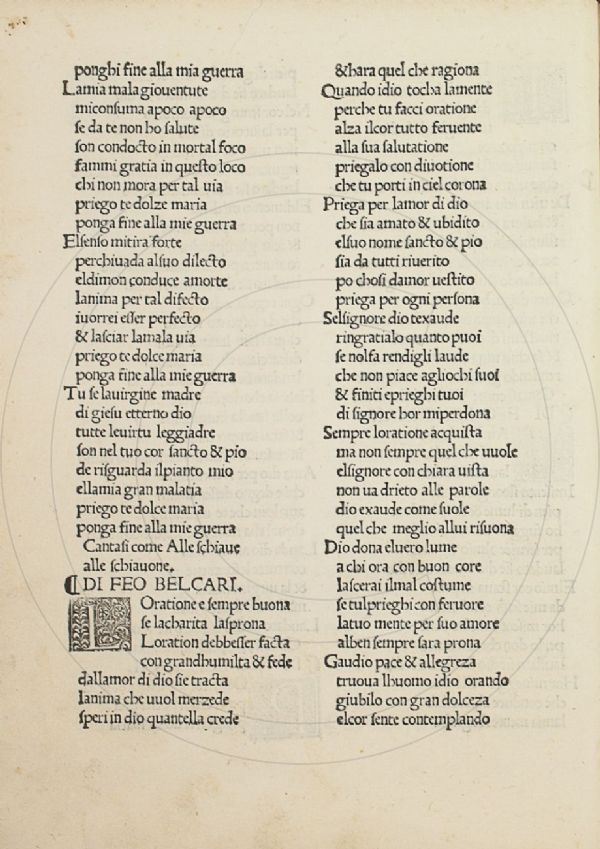 ponghi fine alla mia guerra
Lamia mala giouentute
miconsuma apoco apoco
se da te non ho salute
son condocto in mortal foco
fammi gratia in questo loco
chi non mora per tal uia
priego te dolze maria
ponga fine alla mie guerra
Elsenso mitira forte
perchiuada alsuo dilecto
eldimon conduce amorte
lanima per tal difecto
iuorrei esser perfecto
& lasciar lamala uia
priego te dolce maria
ponga fine alla mie guerra
Tu se lauirgine madre
di giesu etterno dio
tutte leuirtu leggiadre
son nel tuo cor sancto & pio
de risguarda ilpianto mio
ellamia gran malatia
priego te dolce maria
ponga fine alla mie guerra
Cantasi come Alle schiaue
alle schiauone.
⁋DI FEO BELCARI.
L Oratione e sempre buona
se lacharita lasprona
Loration debbesser facta
con grandhumilta & fede
dallamor di dio sie tracta
lanima che uuol merzede
speri in dio quantella crede
&hara quel che ragiona
Quando idio tocha lamente
perche tu facci oratione
alza ilcor tutto feruente
alla sua salutatione
priegalo con diuotione
che tu porti in ciel corona
Priega per lamor di dio
che sia amato & ubidito
elsuo nome sancto & pio
sia da tutti riuerito
po chosi damor uestito
priega per ogni persona
Selsignore dio texaude
ringratialo quanto puoi
se nolfa rendigli laude
che non piace agliochi suoi
& finiti eprieghi tuoi
di signore hor miperdona
Sempre loratione acquista
ma non sempre quel che uuole
elsignore con chiara uista
non ua drieto alle parole
dio exaude come suole
quel che meglio allui risuona
Dio dona eluero lume
a chi ora con buon core
lascerai ilmal costume
se tulprieghi con feruore
latuo mente per suo amore
alben sempre sara prona
Gaudio pace & allegreza
truoua lhuomo idio orando
giubilo con gran dolceza
elcor sente contemplando